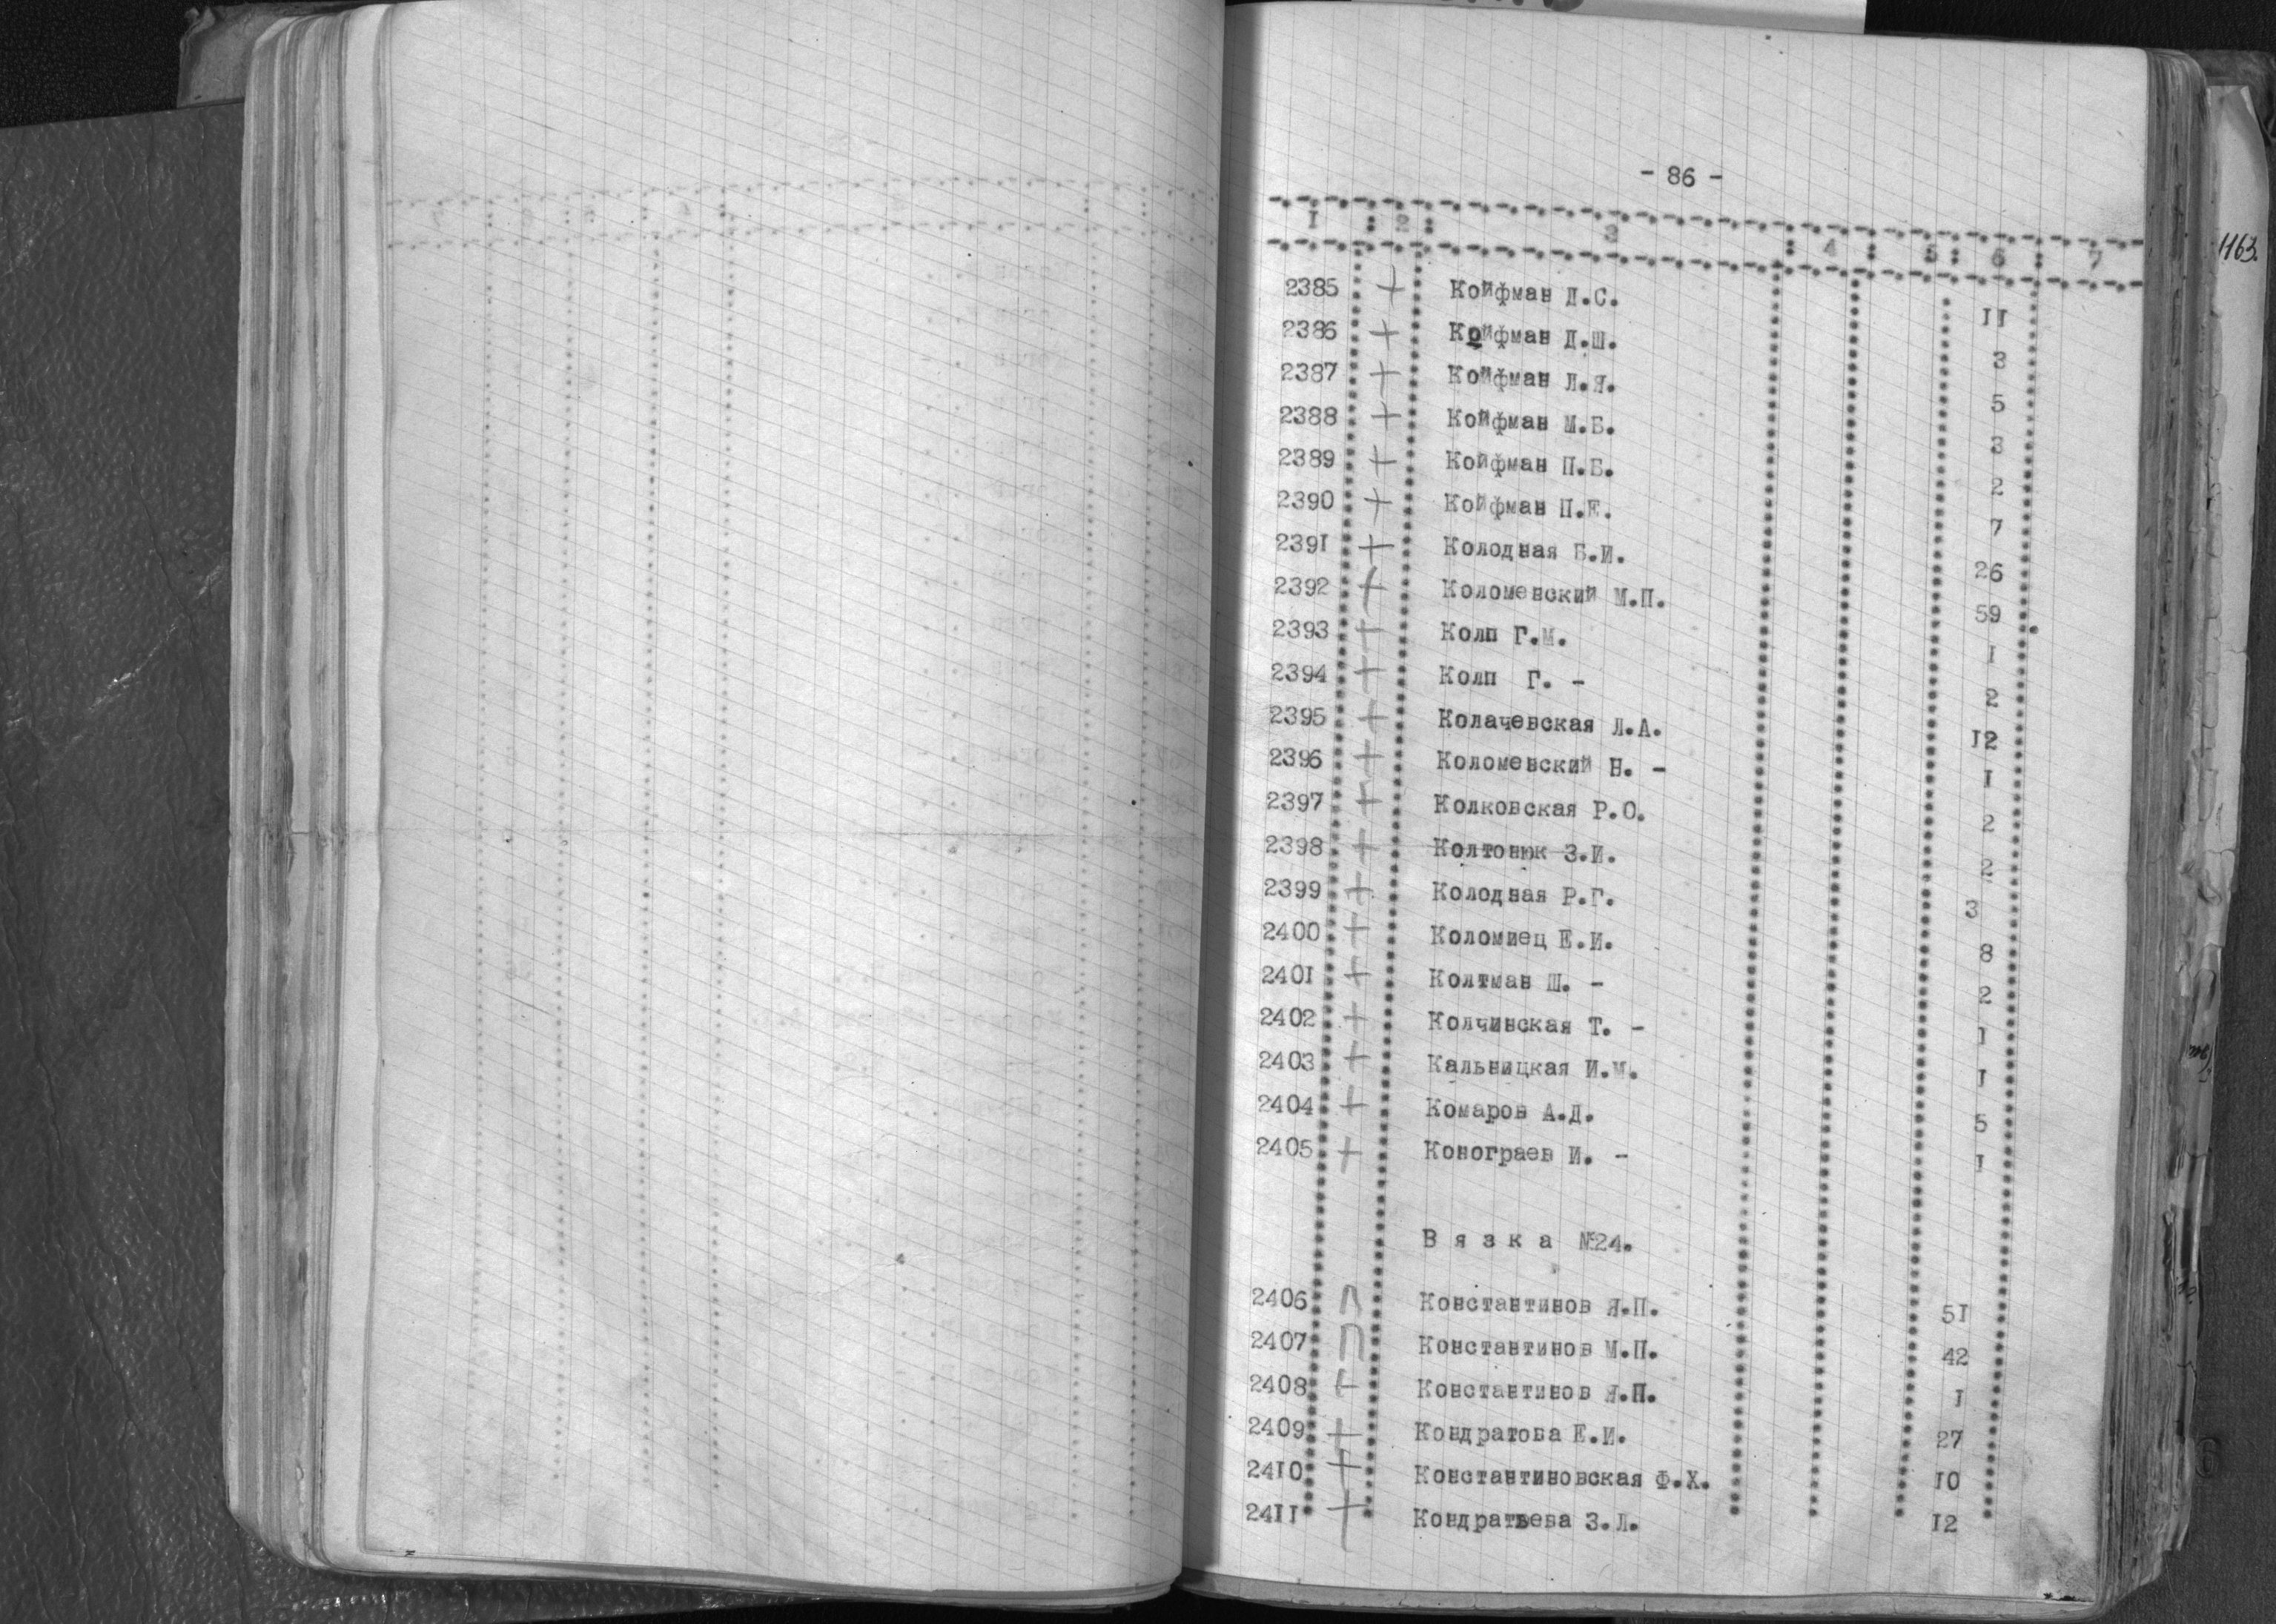 - 86 -
1163.
I 2 3 4 5 6 7
2385 + Койфман Д.С. II
2386 + Койфман Д.Ш. 3
2387 + Койфман Л.Я. 5
2388 + Койфман М.Б. 3
2389 + Койфман П.Б. 2
2390 + Койфман П.Е. 7
239I + Колодная Б.И. 26
2392 + Коломевский М.П. 59
2393 + Колп Г.М. I
2394 + Колп Г. - 2
2395 + Колачевская Л.А. I2
2396 + Коломевский Н. - I
2397 + Колковская Р.О. 2
2398 + Колтонюк З.И. 2
2399 + Колодная Р.Г. 3
2400 + Коломиец Е.И. 8
240I + Колтман Ш. - 2
2402 + Колчинская Т. - I
2403 + Кальницкая И.М. I
2404 + Комаров А.Д. 5
2405 + Конограев И. - I
В я з к а №24.
2406 П Константинов Я.П. 5I
2407 П Константинов М.П. 42
2408 + Константинов Я.П. I
2409 + Кондратова Е.И. 27
24I0 + Константиновская Ф.Х. I0
24II + Кондратьева З.Л. I2